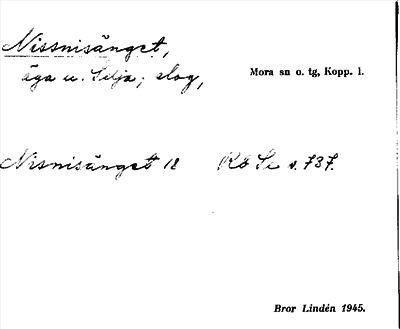 Nissnisänget,
äga u. Selja; slog,
Mora sn o. tg, Kopp. l.
Nisnisänget 12 Rå Se s. 737.
Bror Lindén 1945.